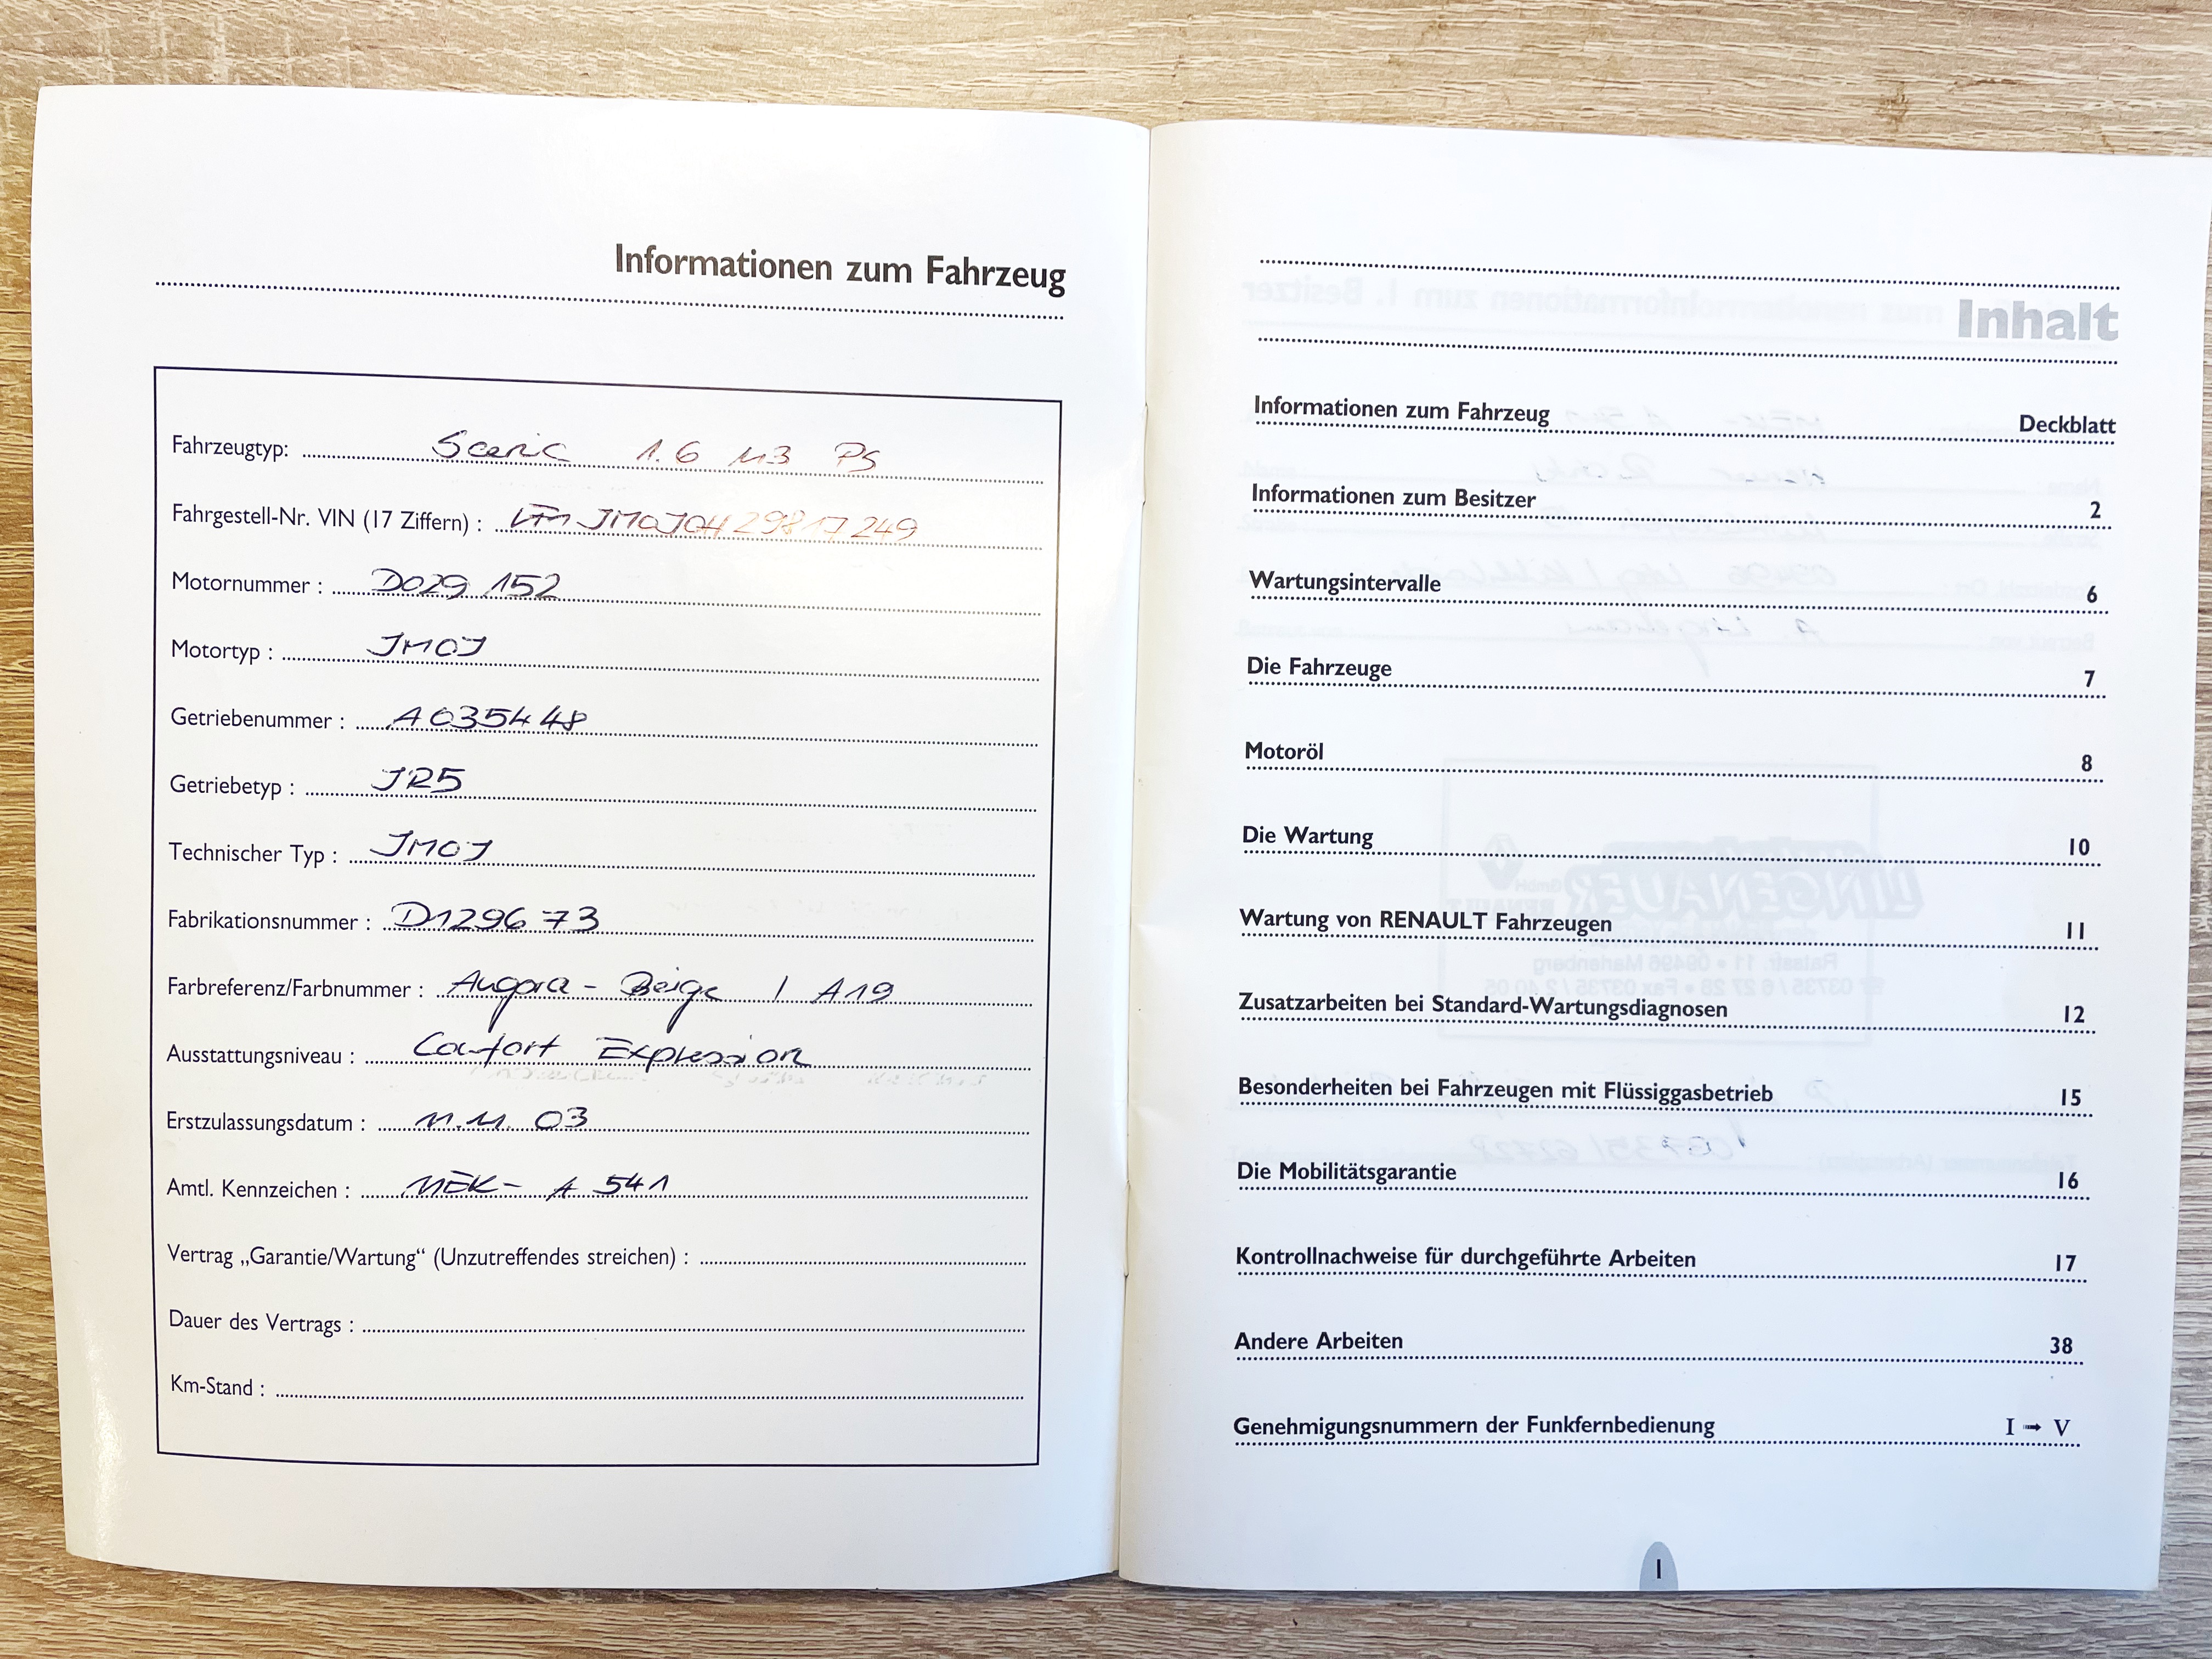 Informationen zum Fahrzeug
Fahrzeugtyp: Scenic 1.6 113 PS
Fahrgestell-Nr. VIN (17 Ziffern) : VF1JM0J0H29817249
Motornummer : D029 152
Motortyp : JM0J
Getriebenummer : A035448
Getriebetyp : JR5
Technischer Typ : JM0J
Fabrikationsnummer : D129673
Farbreferenz/Farbnummer : Angora - Beige / A19
Ausstattungsniveau : Confort Expression
Erstzulassungsdatum : 11.11.03
Amtl. Kennzeichen : MEK - A 541
Vertrag „Garantie/Wartung“ (Unzutreffendes streichen) :
Dauer des Vertrags :
Km-Stand :
Inhalt
Informationen zum Fahrzeug Deckblatt
Informationen zum Besitzer 2
Wartungsintervalle 6
Die Fahrzeuge 7
Motoröl 8
Die Wartung 10
Wartung von RENAULT Fahrzeugen 11
Zusatzarbeiten bei Standard-Wartungsdiagnosen 12
Besonderheiten bei Fahrzeugen mit Flüssiggasbetrieb 15
Die Mobilitätsgarantie 16
Kontrollnachweise für durchgeführte Arbeiten 17
Andere Arbeiten 38
Genehmigungsnummern der Funkfernbedienung I → V
1